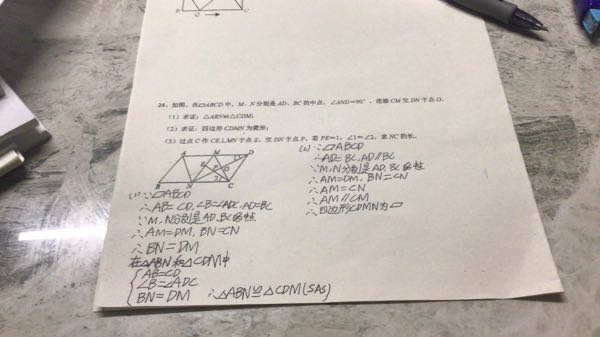 B Q C
24、如图，在▱ABCD中，M、N分别是AD、BC的中点，∠AND=90°，连接CM交DN于点O．
（1）求证：△ABN≌△CDM；
（2）求证：四边形CDMN为菱形；
（3）过点C作CE⊥MN于点E，交DN于点P，若PE=1，∠1=∠2，求NC的长．
A M D
E P O 1
2
B N C
(1) ∵▱ABCD
∴AB=CD, ∠B=∠ADC, AD=BC
∵M、N分别是AD、BC的中点
∴AM=DM, BN=CN
∴BN=DM
在△ABN和△CDM中
AB=CD
∠B=∠ADC
BN=DM ∴△ABN≌△CDM(SAS)
(2) ∵▱ABCD
∴AD=BC, AD∥BC
∵M、N分别是AD、BC的中点
∴AM=DM, BN=CN
∴AM=CN
∴AM∥CM
∴四边形CDMN为▱